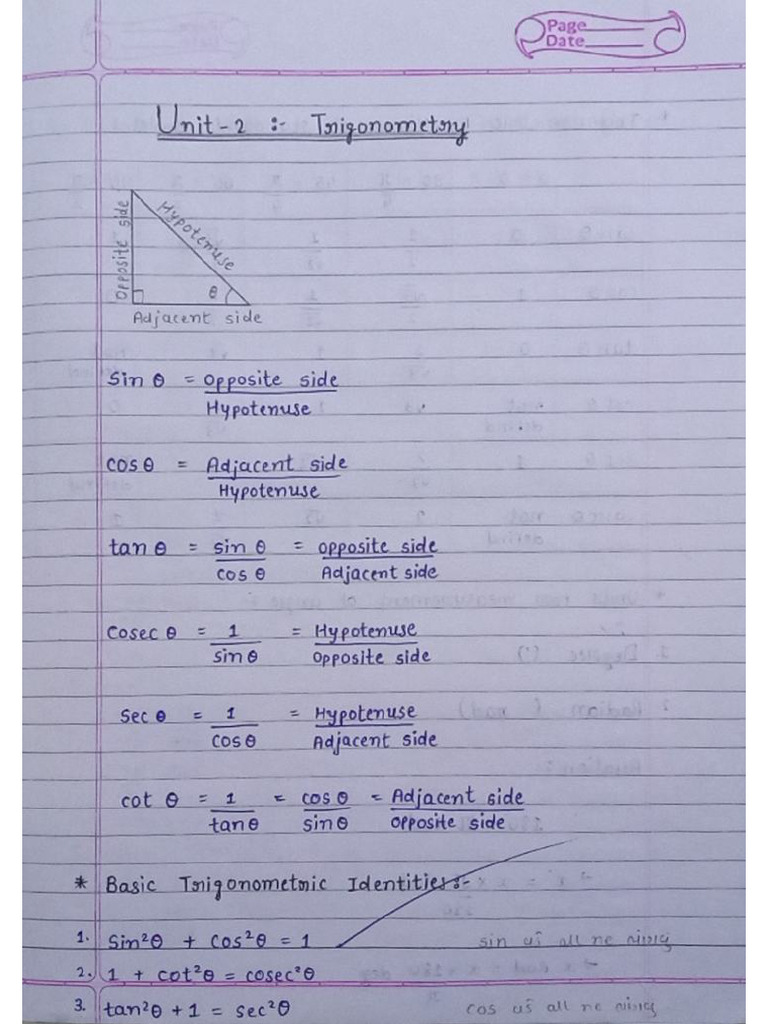 Page
Date
Unit-2 :- Trigonometry
Opposite side
Hypotenuse
θ
Adjacent side
Sin θ = Opposite side / Hypotenuse
cos θ = Adjacent side / Hypotenuse
tan θ = sin θ / cos θ = opposite side / Adjacent side
Cosec θ = 1 / sin θ = Hypotenuse / Opposite side
Sec θ = 1 / cos θ = Hypotenuse / Adjacent side
cot θ = 1 / tan θ = cos θ / sin θ = Adjacent side / Opposite side
* Basic Trigonometric Identities:-
1. Sin²θ + cos²θ = 1
2. 1 + cot²θ = cosec²θ
3. tan²θ + 1 = sec²θ